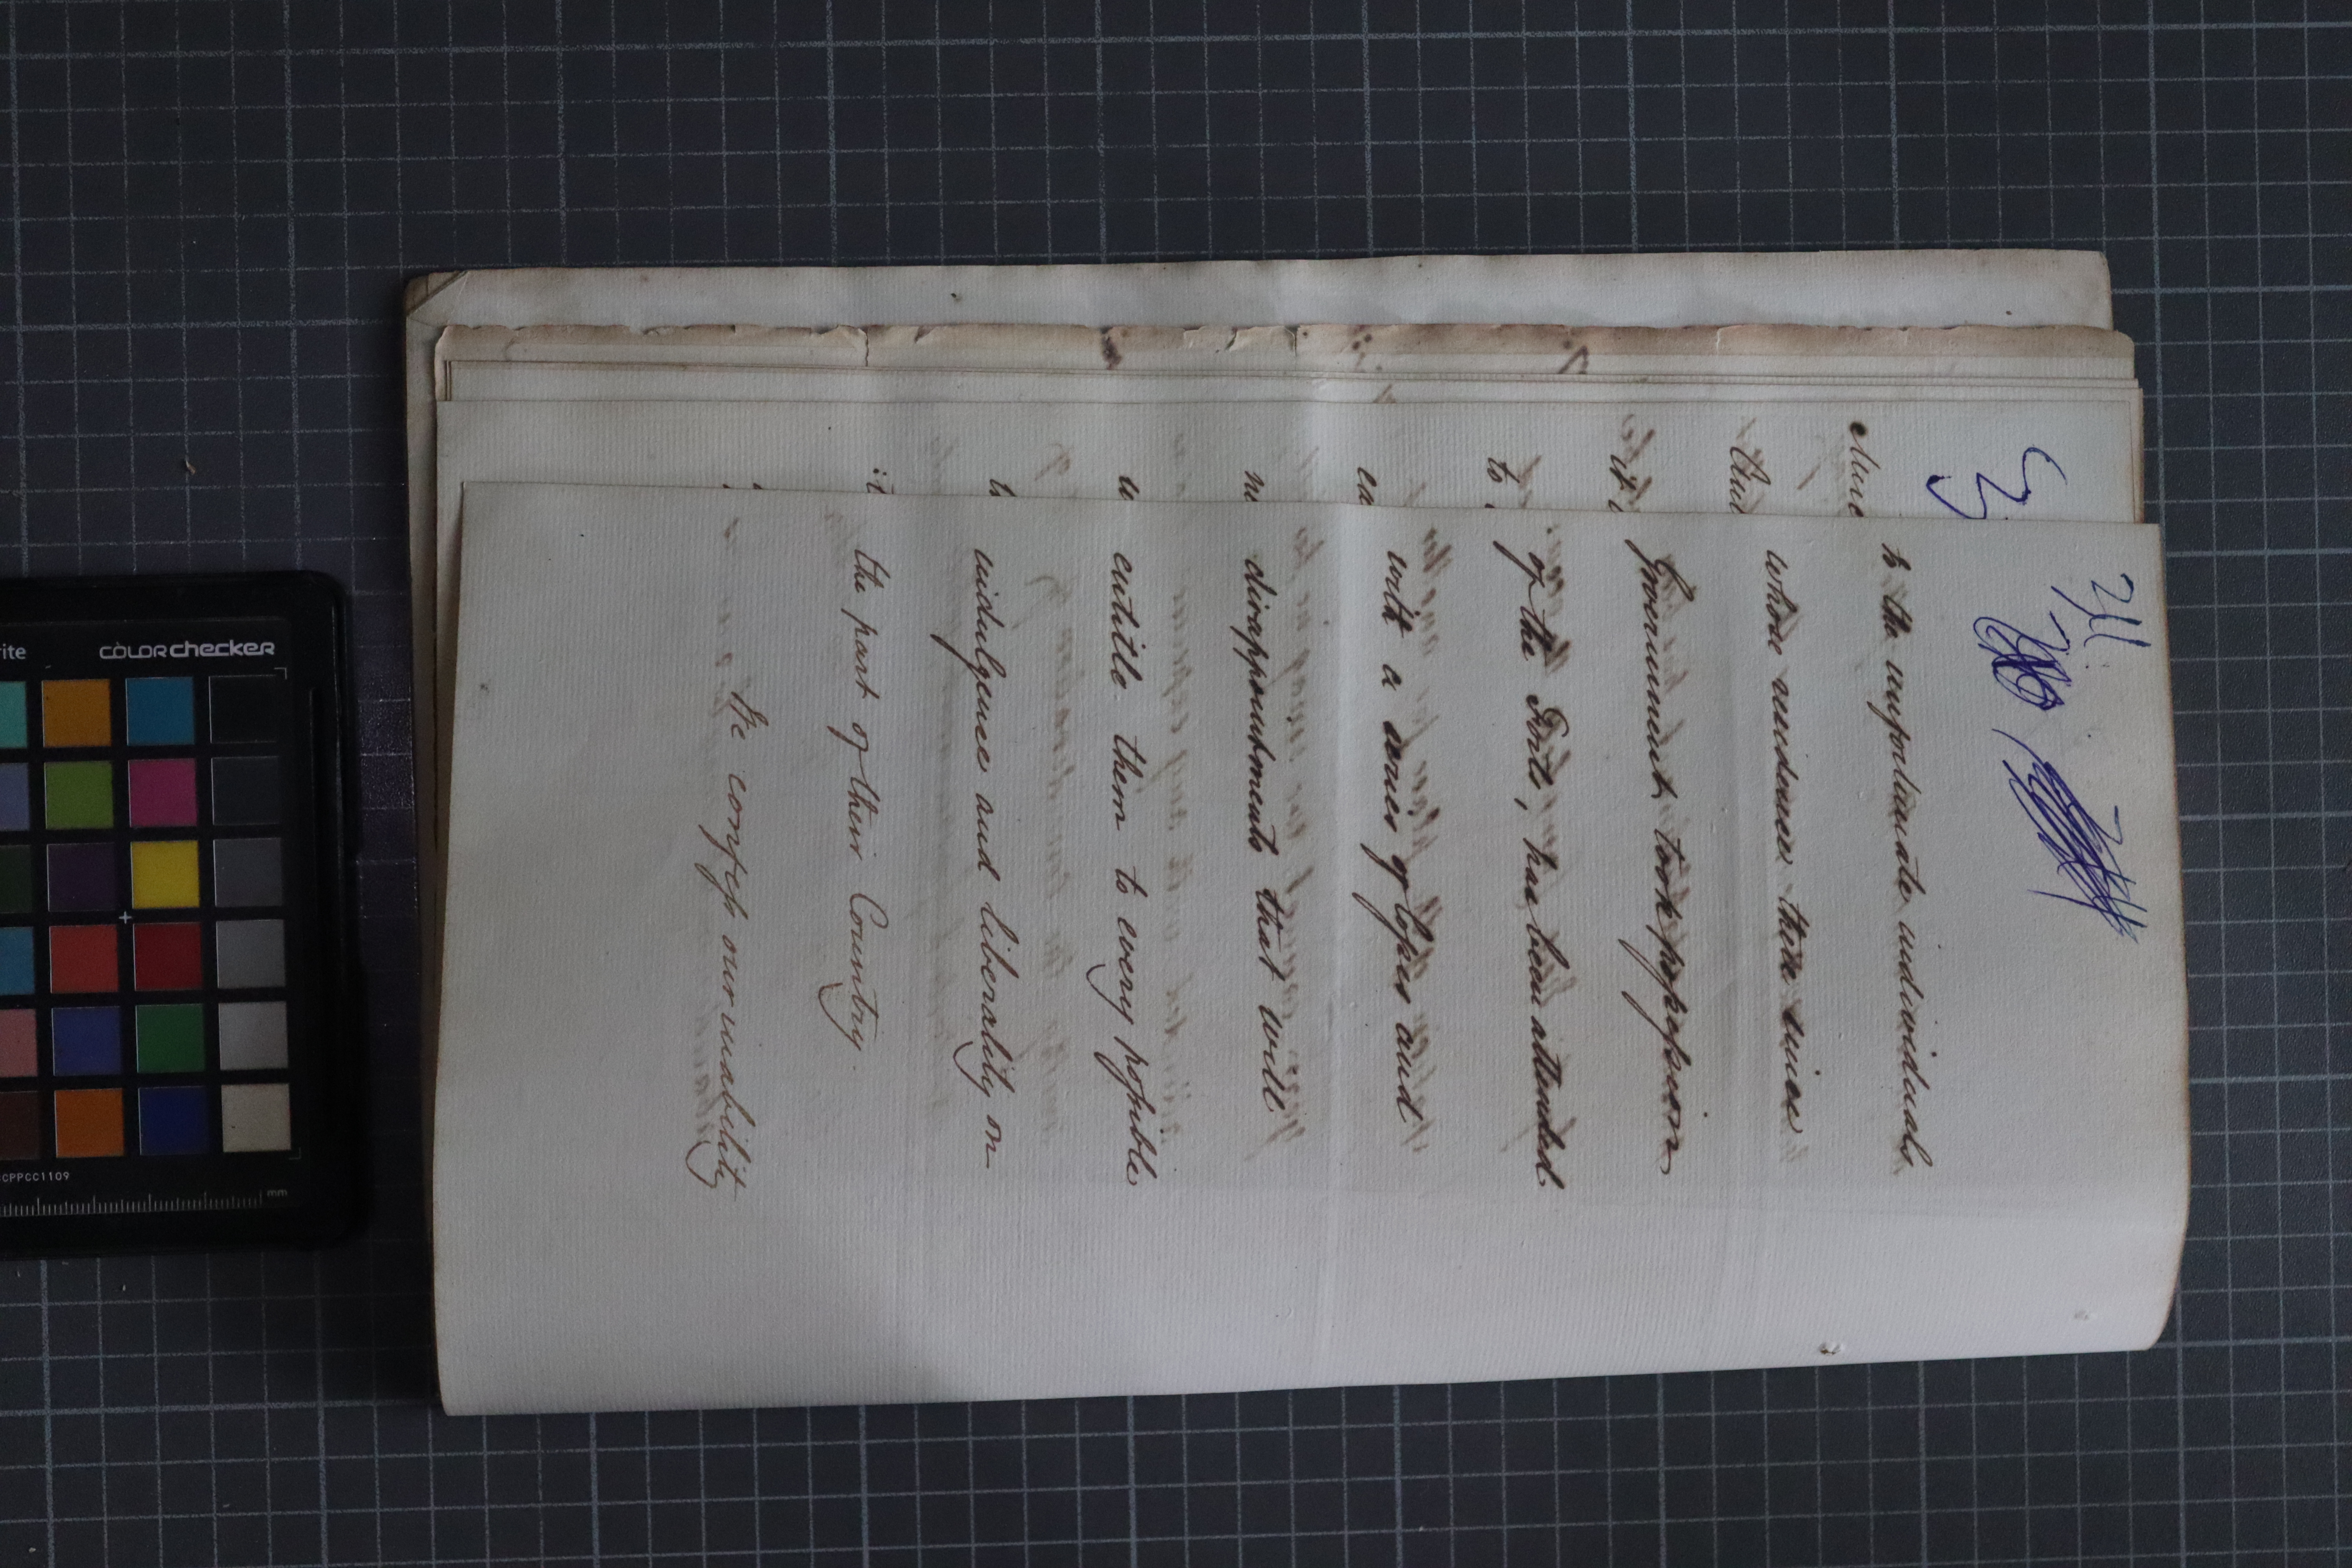 to the unfortunate individuals
whose residence there since
Government took possession
of the Forts, has been attended
with a series of losses and
disappointments that will
entitle them to every possible
indulgence and liberality on
the part of their Country.
We confess our inability
colorchecker
mm